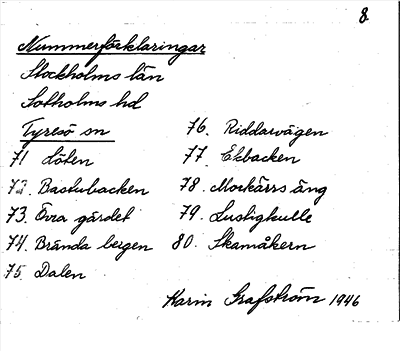 8.
Nummerförklaringar
Stockholms län
Sotholms hd
Tyresö sn
71 Löten
72. Bastubacken
73. Övra gärdet
74. Brända bergen
75. Dalen
76. Riddarvägen
77. Ekbacken
78. Morkärrs äng
79. Lustigkulle
80. Skamåkern
Karin Grafström 1946